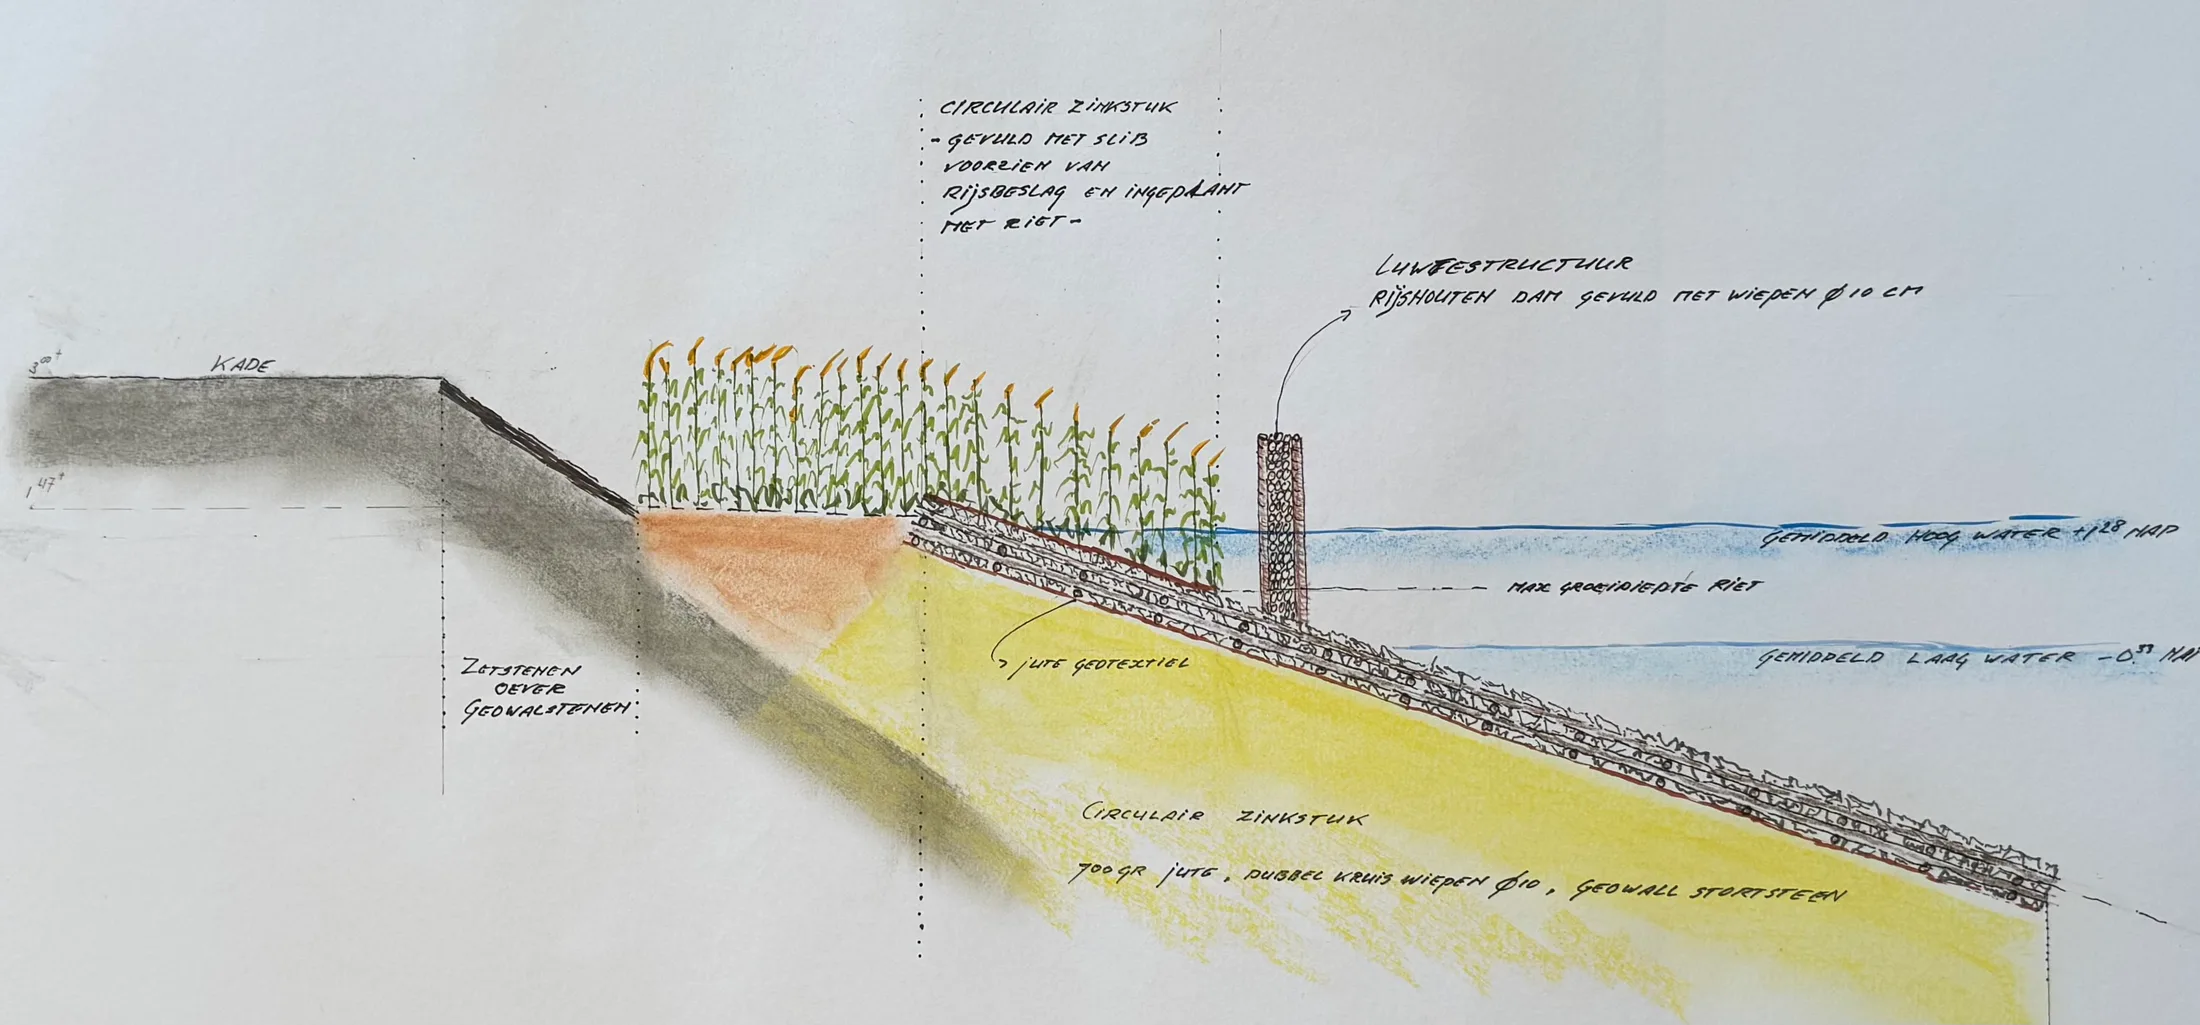 CIRCULAIR ZINKSTUK
- GEVULD MET SLIB
VOORZIEN VAN
RIJSBESLAG EN INGEPLANT
MET RIET -
LUWTESTRUCTUUR
RIJSHOUTEN DAM GEVULD MET WIEPEN Ø 10 CM
3⁰⁰⁺
KADE
1⁴⁷⁺
GEMIDDELD HOOG WATER +1²⁸ NAP
MAX GROEIDIEPTE RIET
GEMIDDELD LAAG WATER -0.⁵³ NAP
JUTE GEOTEXTIEL
ZETSTENEN
OEVER
GEOWALSTENEN
CIRCULAIR ZINKSTUK
700 GR JUTE, DUBBEL KRUIS WIEPEN Ø10, GEOWALL STORTSTEEN